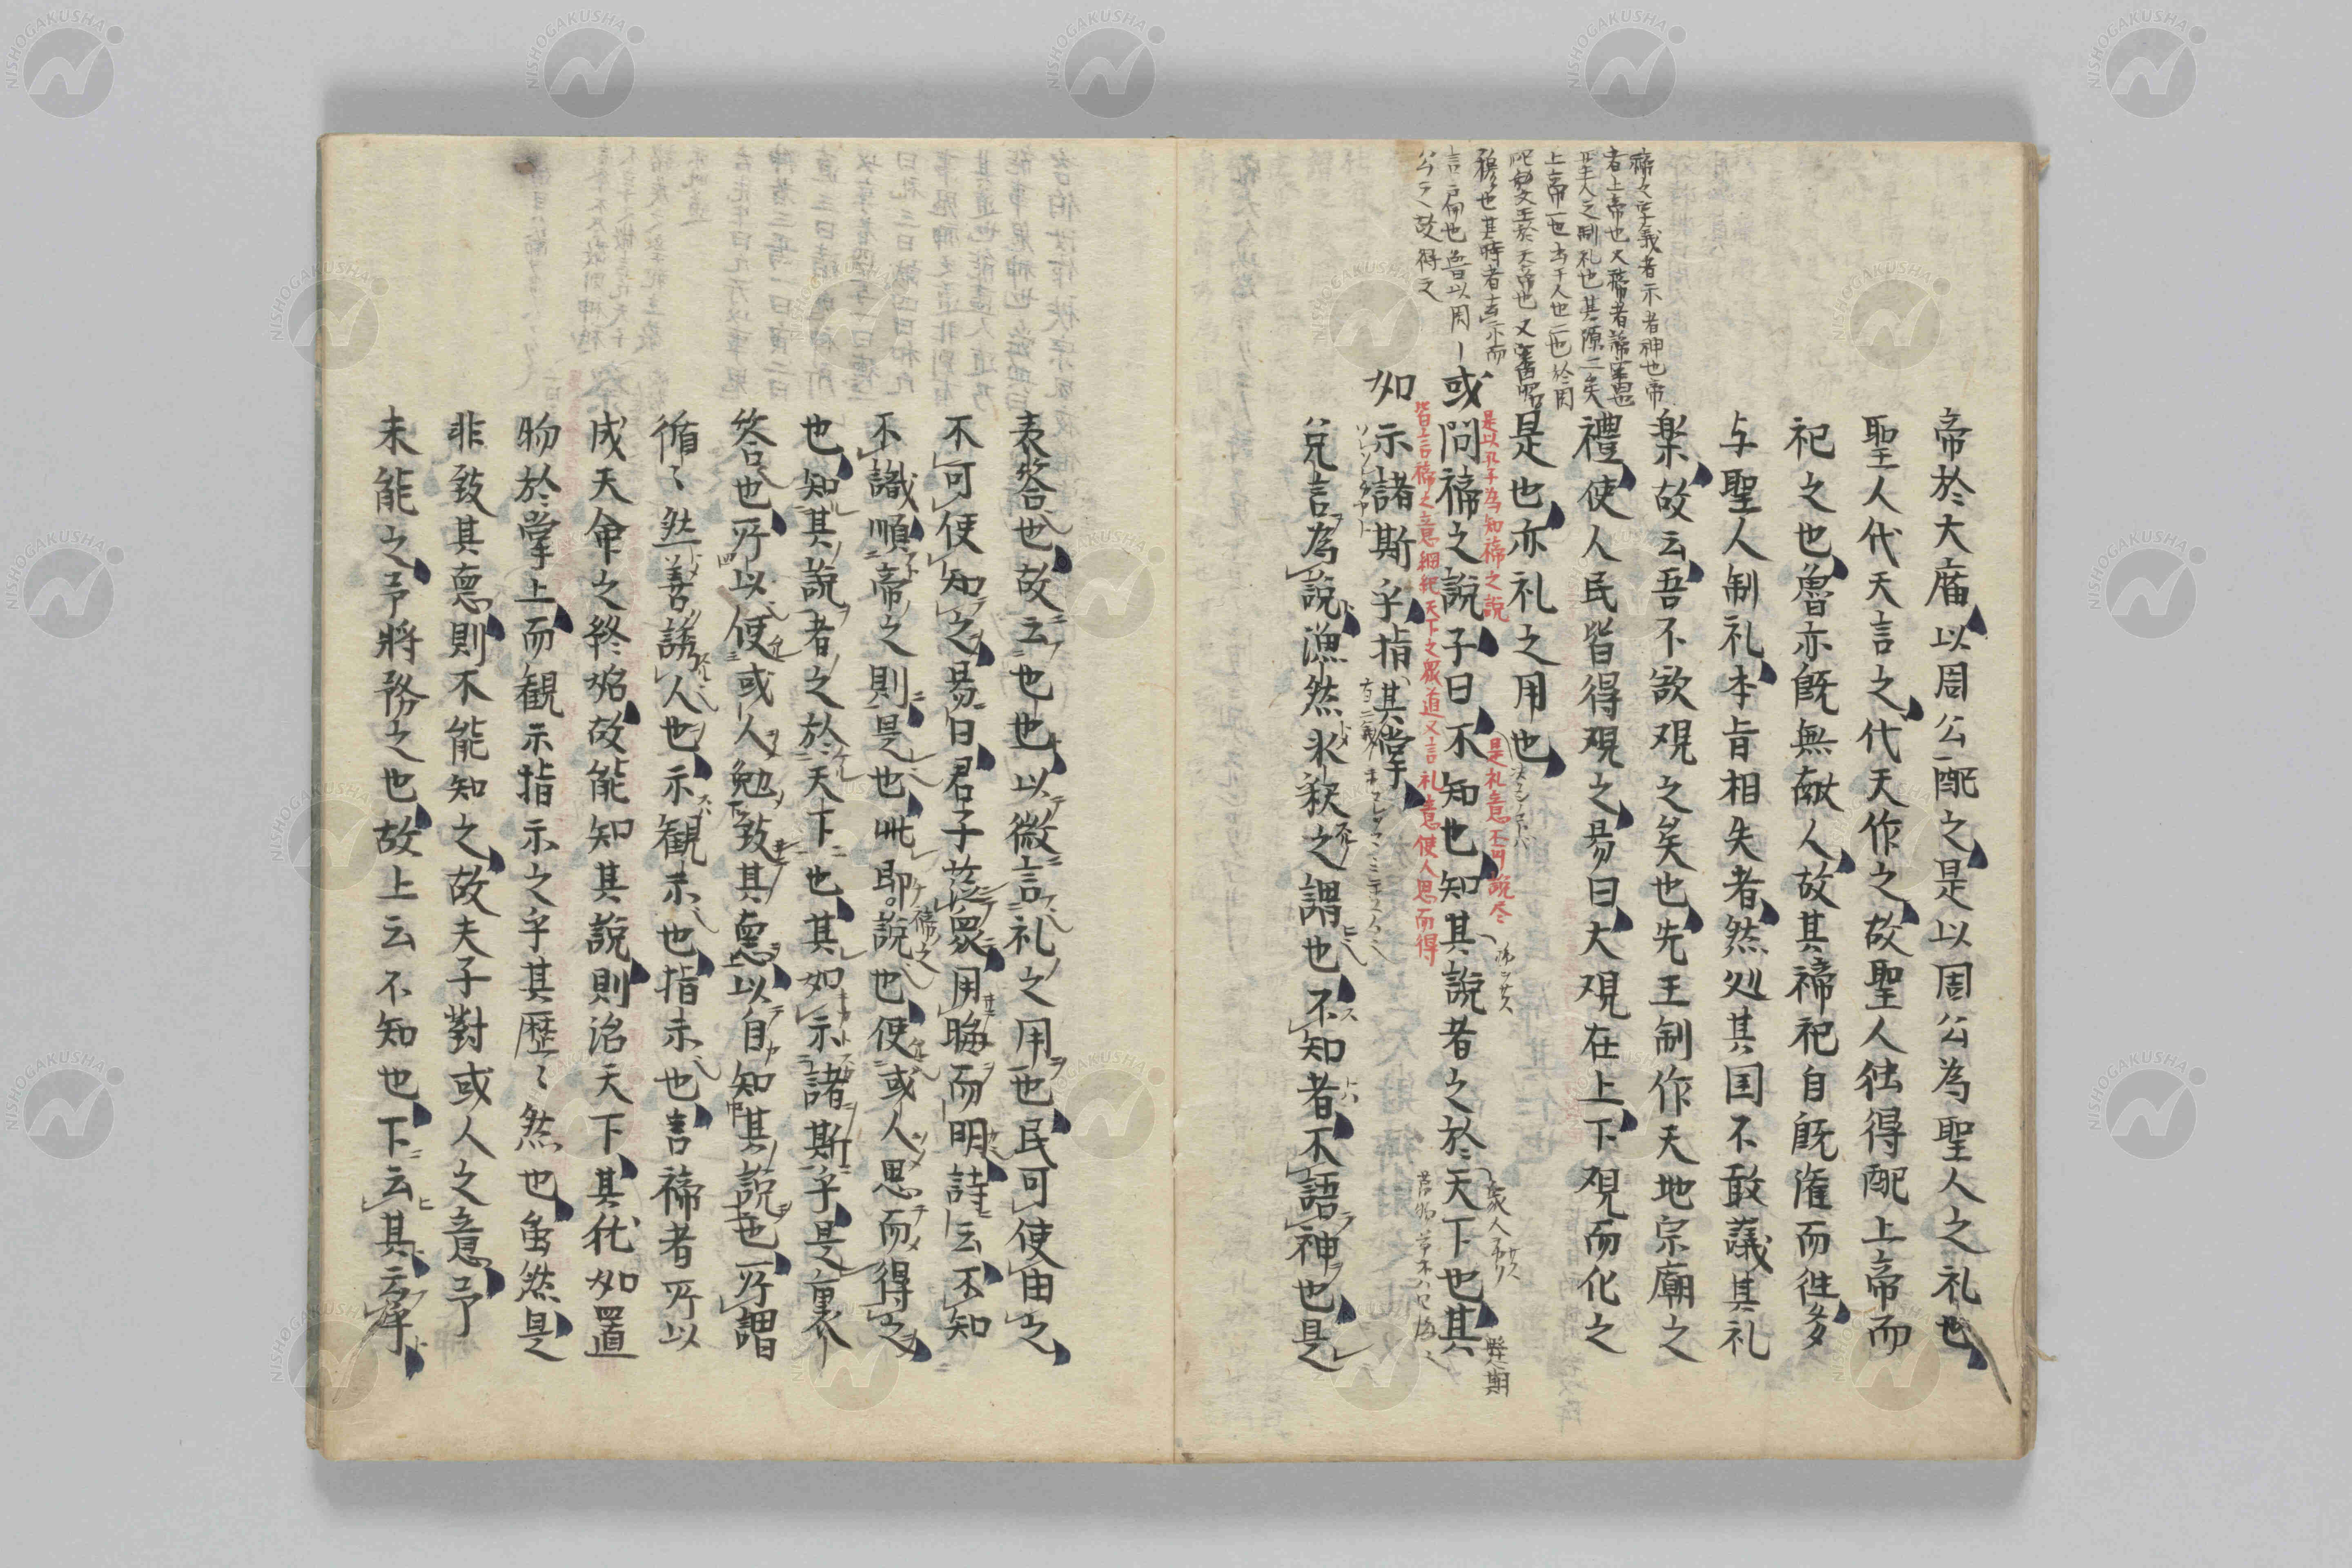 禘々字義者示者神也帝
者上帝也又禘者諦審也
聖人之制礼也其源二矣
上帝一也出于人也二也於周
穆也其時者吉示而
言之故得之
帝於大庿以周公配之是以周公為聖人之礼也
聖人代天言之代天作之故聖人独得配上帝而
祀之也魯亦旣無献人故其禘祀自旣灌而徃多
与聖人制礼本旨相失者然処其国不敢議其礼
楽故云吾不欲观之矣也先王制作天地宗廟之
禮使人民皆得观之易曰大观在上下观而化之
是也亦礼之用也
是以孔子為知禘之説
是礼意不可説尽
或問禘之説子曰不知也知其説者之於天下也其
皆言禘之意網紀天下之衆道又言礼意使人思而得
如示諸斯乎指其掌
兌言為説渙然氷釈之謂也不知者不語神也是
表答也故云也也以微言礼之用也民可使由之
不可使知之易曰君子莅衆用晦而明詩云不知
不識順帝之則是也此即説也使或人思而得之
禘之
也知其説者之於天下也其如示諸斯乎是裏
答也所以使或人勉致其悳以自知其説也所謂
循々然善誘人也示観示也指示也言禘者所以
成天命之終始故能知其説則治天下其犹如置
物於掌上而観示指示之乎其歴々然也虽然是
非致其悳則不能知之故夫子對或人之意予
未能之予將務之也故上云不知也下云其示掌